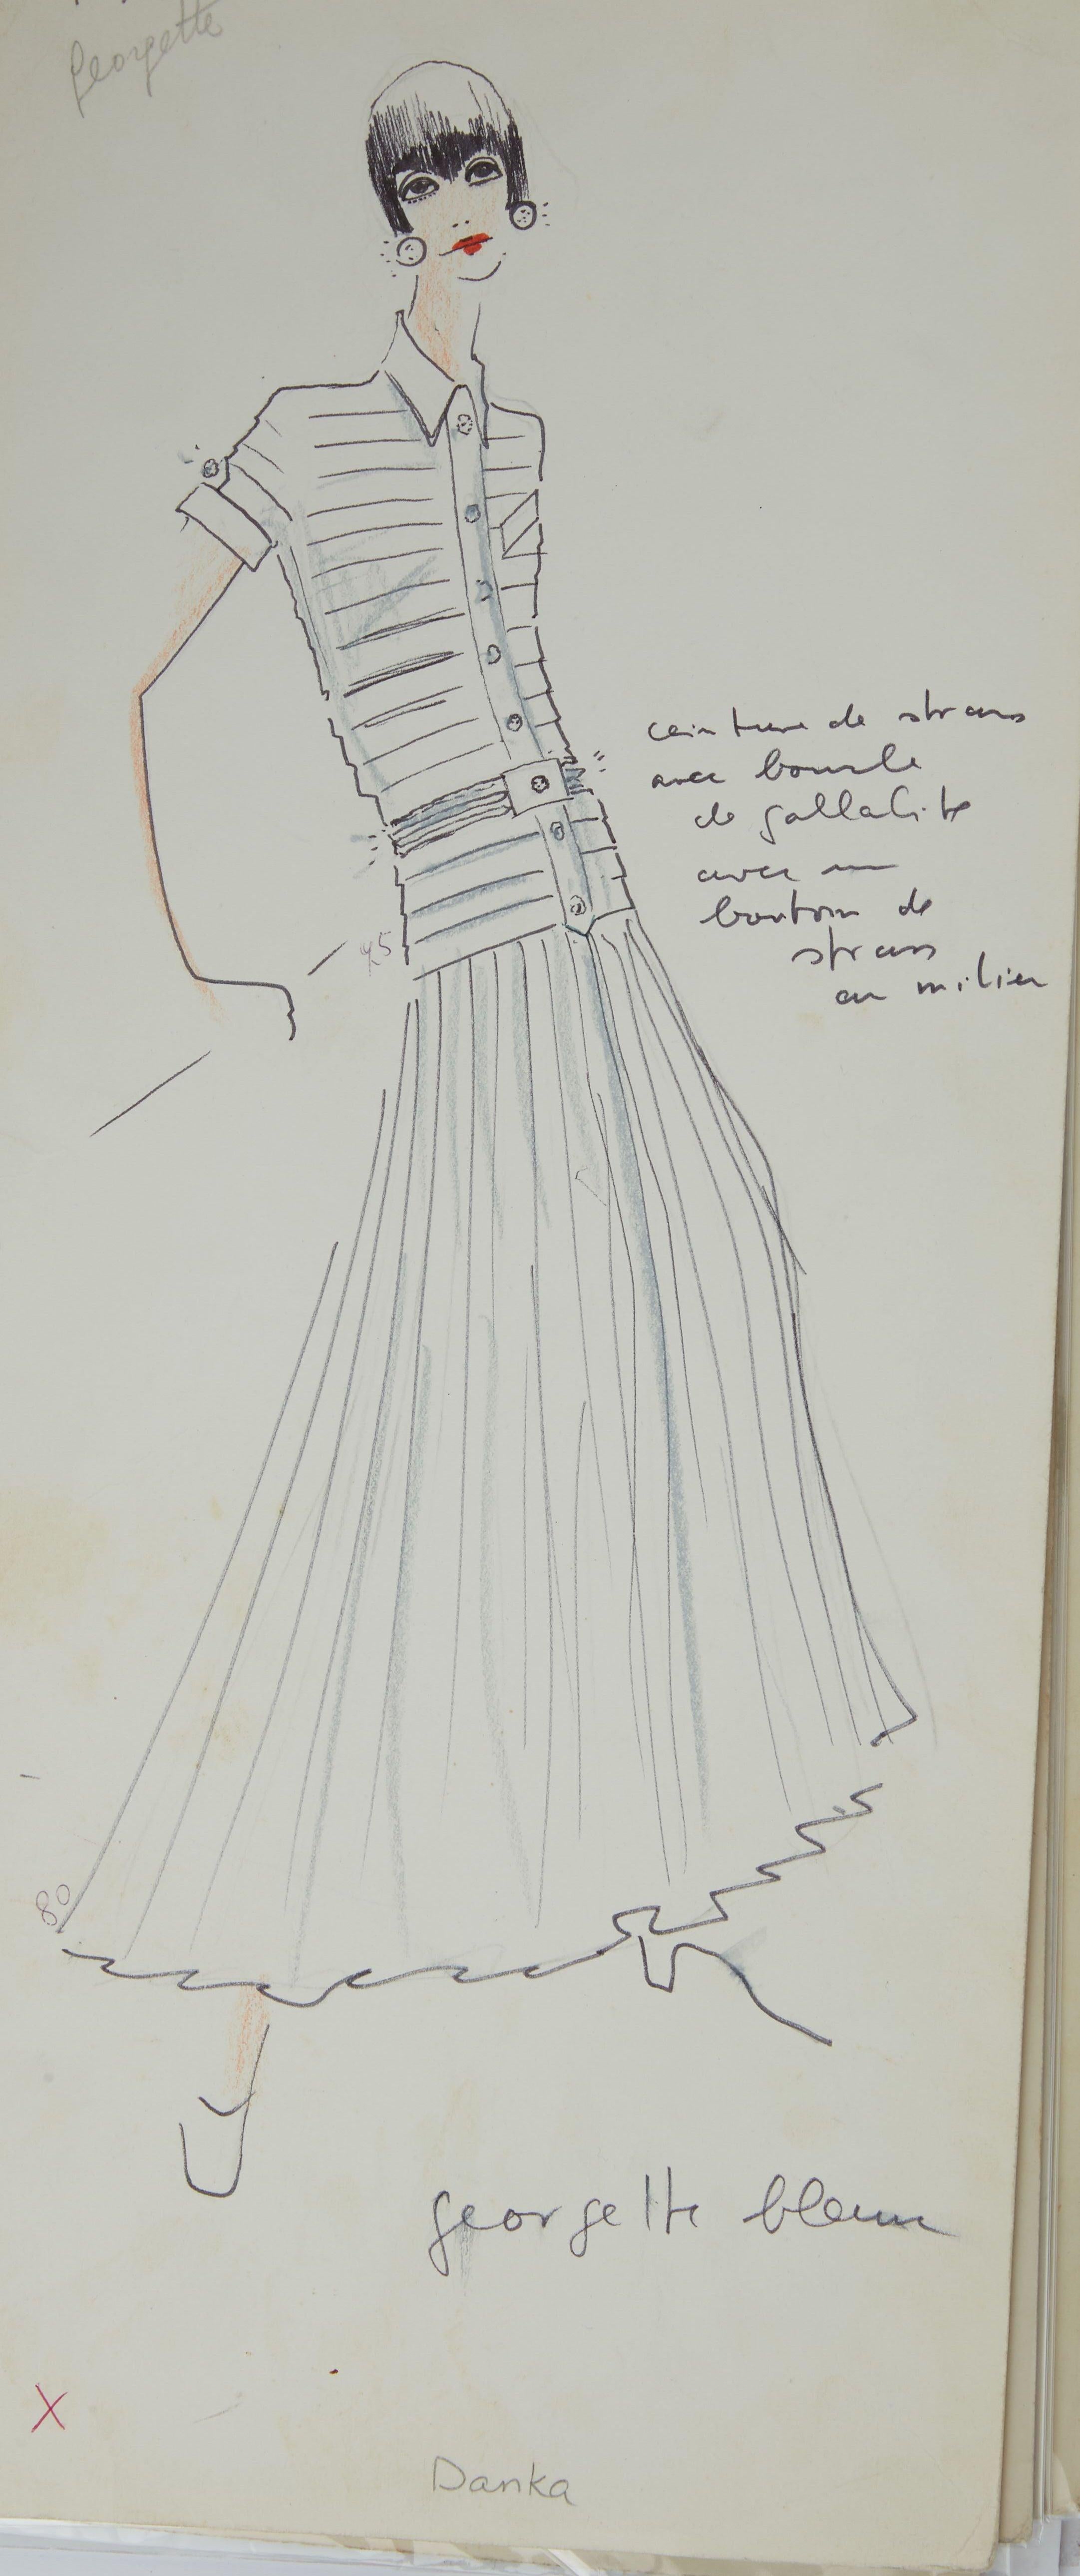 Georgette
ceinture de strass
avec boucle
de gallalite
avec un
bouton de
strass
au milieu
45
80
georgette blanc
X
Danka